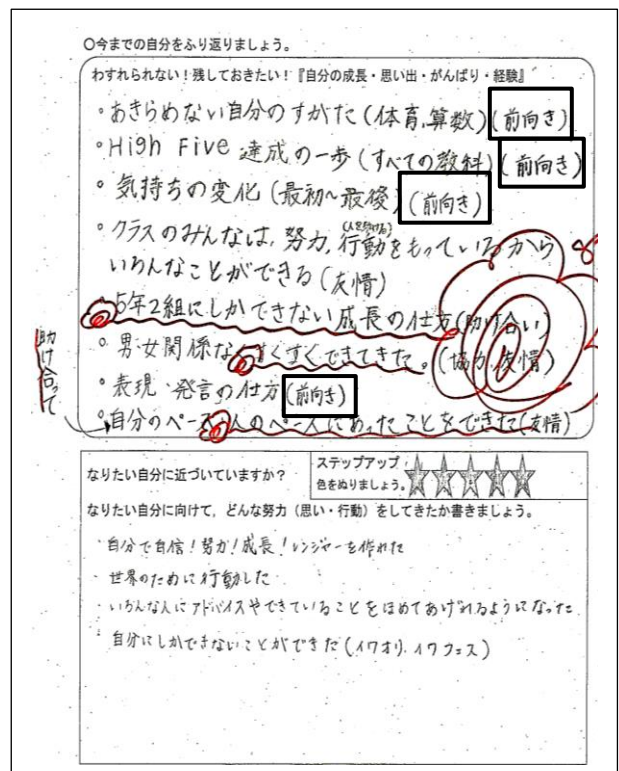 ○今までの自分をふり返りましょう。
わすれられない!残しておきたい!『自分の成長・思い出・がんばり・経験』
・あきらめない自分のすがた(体育,算数)(前向き)
・High Five 達成の一歩(すべての教科)(前向き)
・気持ちの変化(最初~最後)(前向き)
・クラスのみんなは,努力,行動をもっているから
いろんなことができる(友情)
・5年2組にしかできない成長の仕方(助け合い)
・男女関係な すくすくできてきた。(協力,友情)
助け合って
・表現・発言の仕方(前向き)
・自分のペース 人のペースにあったことをできた(友情)
なりたい自分に近づいていますか?
ステップアップ
色をぬりましょう。
なりたい自分に向けて,どんな努力(思い・行動)をしてきたか書きましょう。
・自分で自信!努力!成長!レンジャーを作れた
・世界のために行動した
・いろんな人にアドバイスやできていることをほめてあげれるようになった
・自分にしかできないことができた(イワオリ.イワフェス)